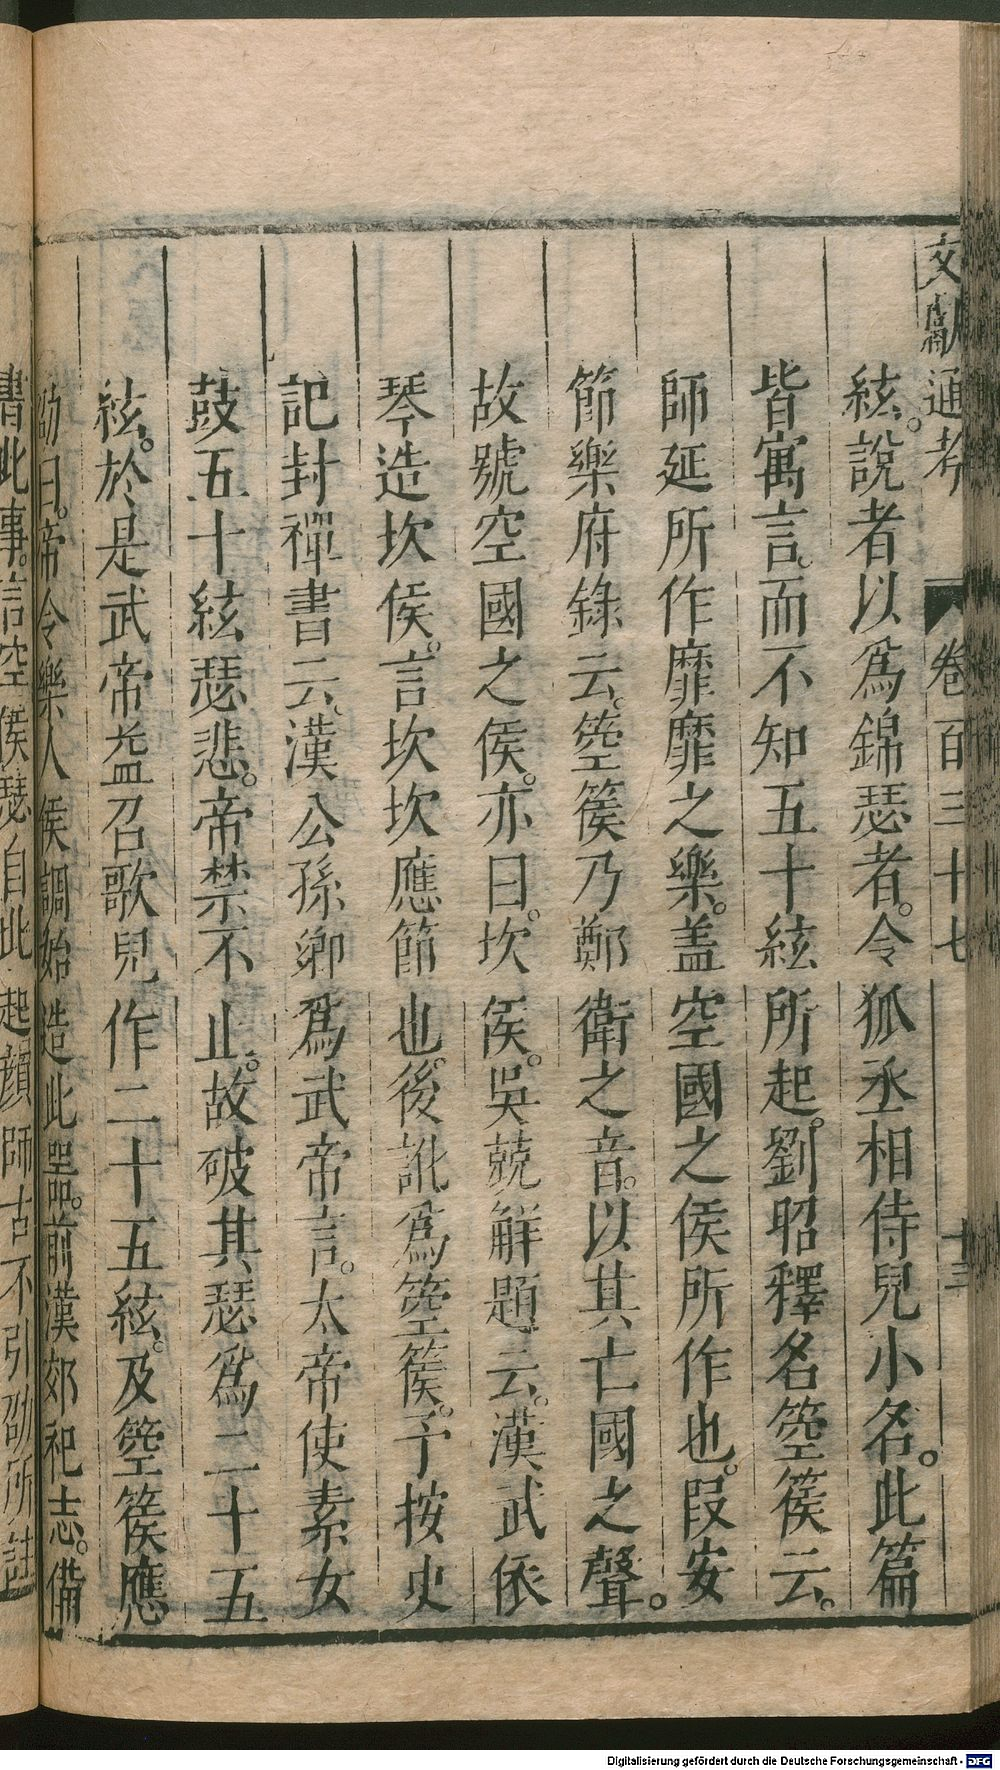 文獻通考 卷百三十七 十三
絃。說者以爲錦瑟者。令狐丞相侍兒小名。此篇
皆寓言。而不知五十絃所起。劉昭釋名箜篌云。
師延所作靡靡之樂。盖空國之侯所作也。段安
節樂府錄云。箜篌乃鄭衛之音。以其亡國之聲。
故號空國之侯。亦曰。坎侯。吳兢解題云。漢武依
琴造坎侯。言坎坎應節也。後訛爲箜篌。予按史
記封禪書云。漢公孫卿爲武帝言。太帝使素女
鼓五十絃瑟悲。帝禁不止。故破其瑟爲二十五
絃。於是武帝益召歌兒作二十五絃。及箜篌應
劭曰。帝令樂人侯調始造此器。前漢郊祀志。備
書此事。言空侯瑟自此起顔師古不引劭所註
Digitalisierung gefördert durch die Deutsche Forschungsgemeinschaft - DFG